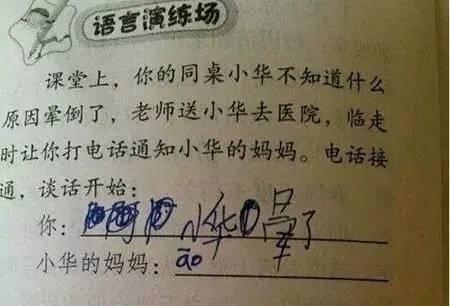 语言演练场
课堂上，你的同桌小华不知道什么
原因晕倒了，老师送小华去医院，临走
时让你打电话通知小华的妈妈。电话接
通，谈话开始：
你：小华晕了
小华的妈妈：āo